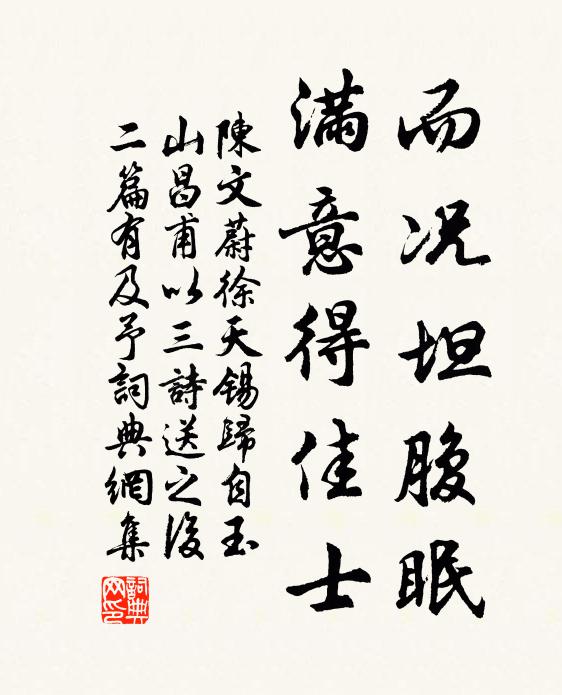 而况坦腹眠
满意得佳士
陳文蔚徐天锡歸自玉
山昌甫以三詩送之後
二篇有及予詞典網集
詞典網印